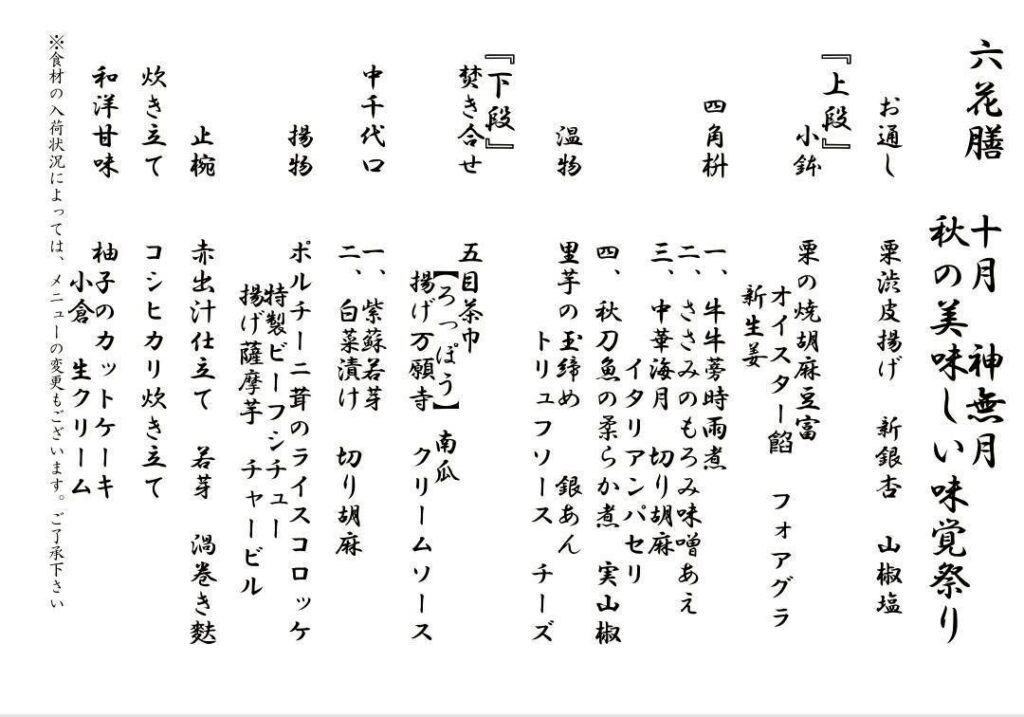 六花膳 十月 神無月
秋の美味しい味覚祭り
お通し 栗渋皮揚げ 新銀杏 山椒塩
『上段』
小鉢 栗の焼胡麻豆富
オイスター餡 フォアグラ
新生姜
四角枡 一、牛牛蒡時雨煮
二、ささみのもろみ味噌あえ
三、中華海月 切り胡麻
イタリアンパセリ
四、秋刀魚の柔らか煮 実山椒
温物 里芋の玉締め 銀あん
トリュフソース チーズ
『下段』
焚き合せ 五目茶巾
【ろっぽう】南瓜
揚げ万願寺 クリームソース
中千代口 一、紫蘇若芽
二、白菜漬け 切り胡麻
揚物 ポルチーニ茸のライスコロッケ
特製ビーフシチュー
揚げ薩摩芋 チャービル
止椀 赤出汁仕立て 若芽 渦巻き麩
炊き立て コシヒカリ炊き立て
和洋甘味 柚子のカットケーキ
小倉 生クリーム
※食材の入荷状況によっては、メニューの変更もございます。ご了承下さい